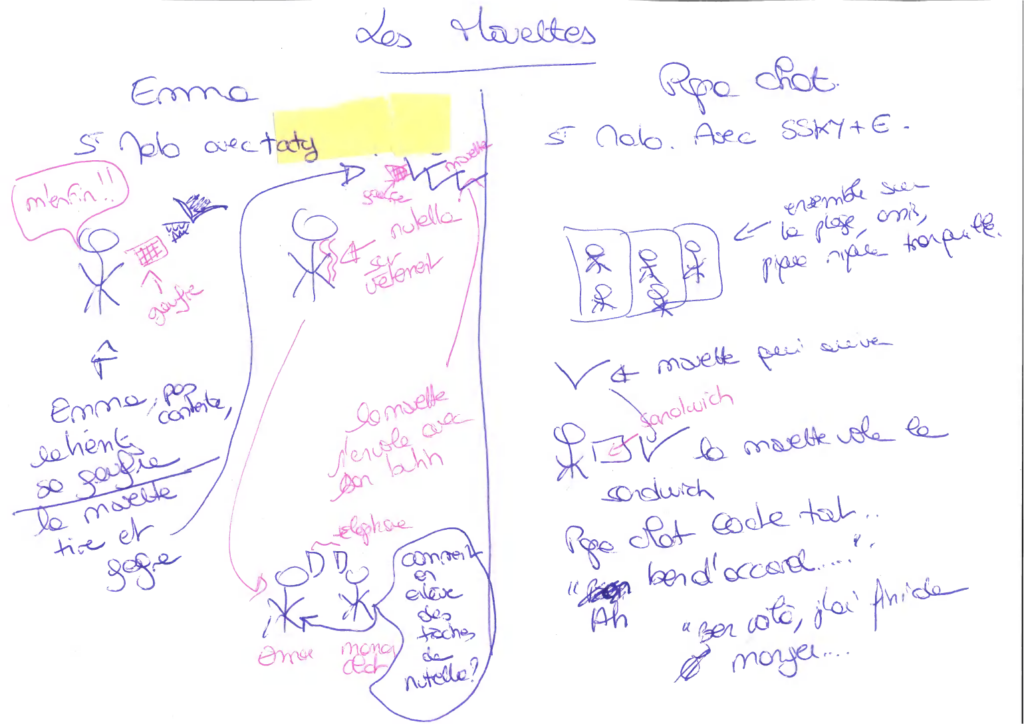 Les Mouettes
Emma
St Malo avec taty
m'enfin!!
gaufre
Emma, pas
contente,
retient
sa gaufre
la mouette
tire et
gagne
mouette
gaufre
nutella
sur
vêtement
la mouette
s'envole avec
son butin
téléphone
Emma
comment
on
enlève
des
taches
de
nutella?
Papa chat
St Malo. Avec SSKY + E.
ensemble sur
la plage, assis,
pique nique tranquille.
mouette qui arrive
sandwich
la mouette vole le
sandwich
Papa chat
Ah bon d'accord.....".
"Ben voilà, j'ai fini de
manger....